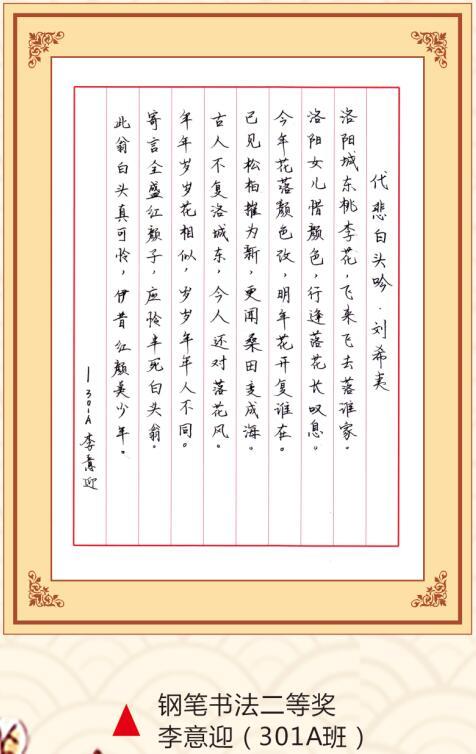 代悲白头吟·刘希夷
洛阳城东桃李花，飞来飞去落谁家。
洛阳女儿惜颜色，行逢落花长叹息。
今年花落颜色改，明年花开复谁在。
已见松柏摧为薪，更闻桑田变成海。
古人不复洛城东，今人还对落花风。
年年岁岁花相似，岁岁年年人不同。
寄言全盛红颜子，应怜半死白头翁。
此翁白头真可怜，伊昔红颜美少年。
—301A 李意迎
钢笔书法二等奖
李意迎（301A班）